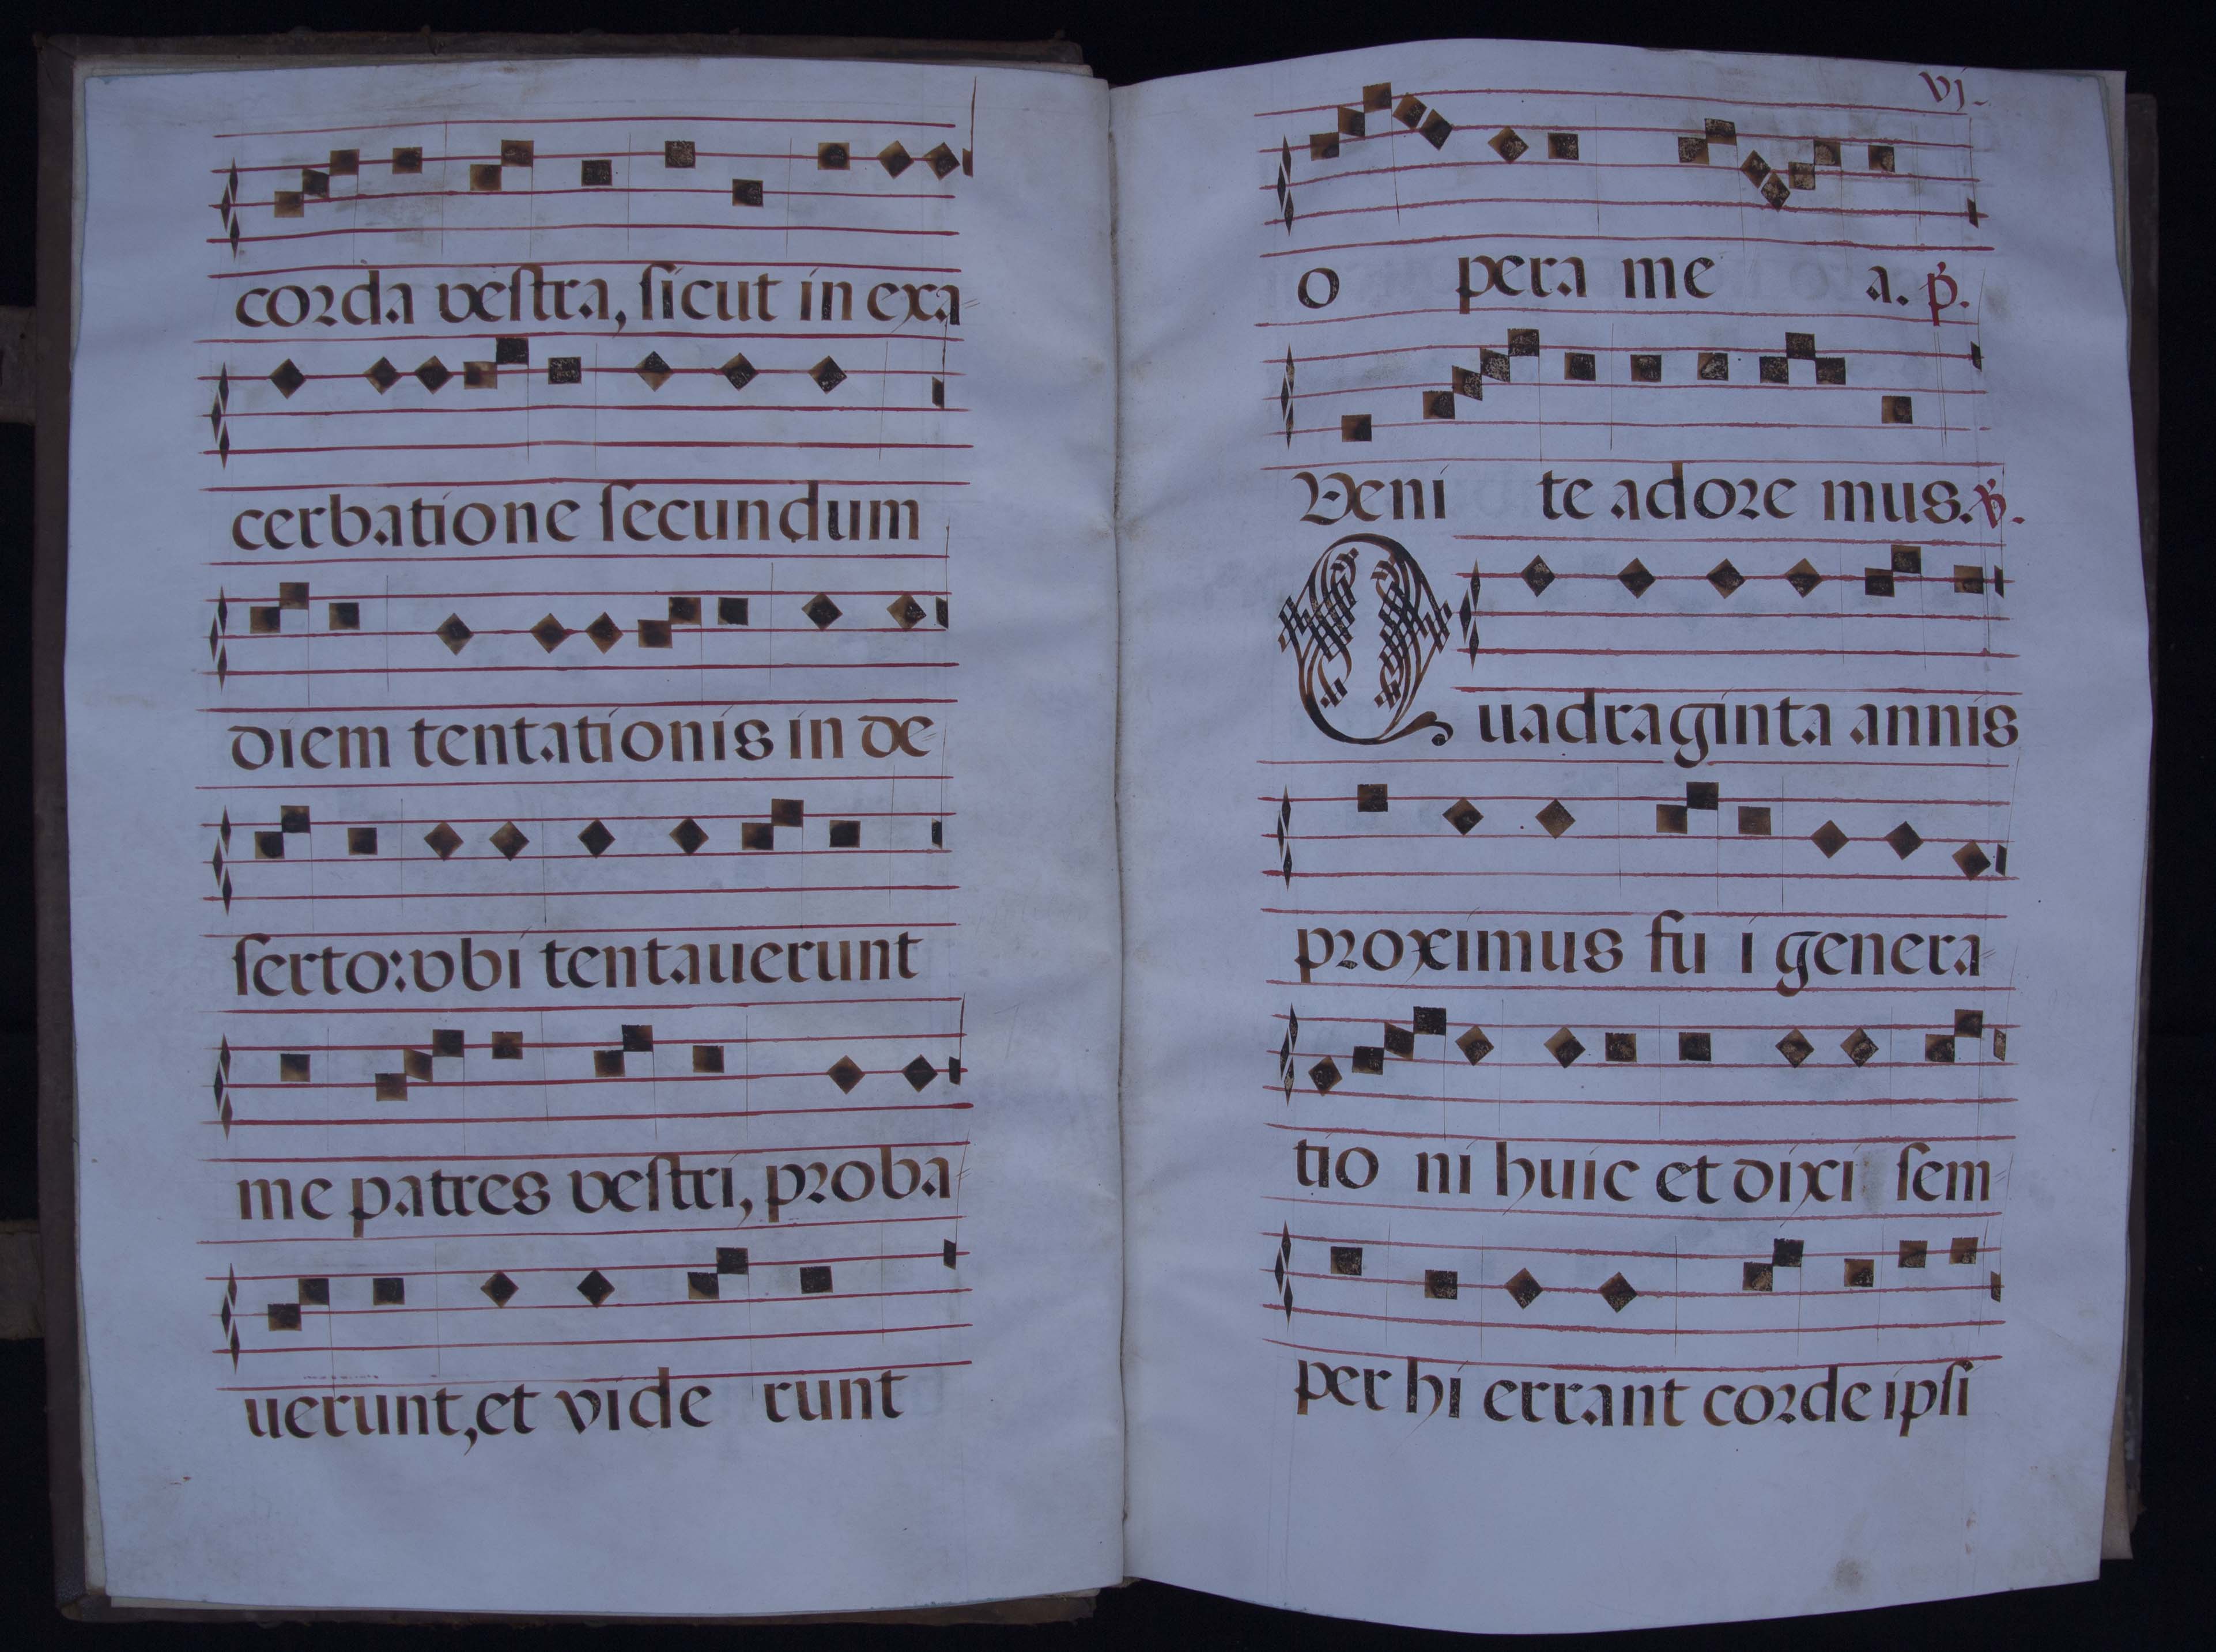 corda veſtra, ſicut in exa=
cerbatione ſecundum
diem tentationis in de=
ſerto: vbi tentauerunt
me patres veſtri, proba=
uerunt, et vide runt
vj.
o pera me a. p̃.
Veni te adore mus. ṽ.
Quadraginta annis
proximus fu i genera=
tio ni huic et dixi ſem=
per hi errant corde ipſi